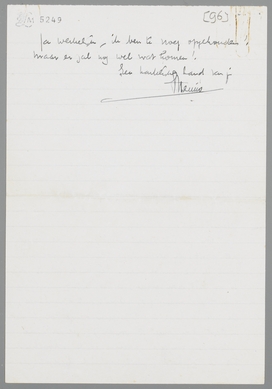 5249
[96]
Ja werkelijk, ik ben te vroeg opgehouden!
maar er zal nog wel wat komen!
Een hartelijke hand van je
Menno